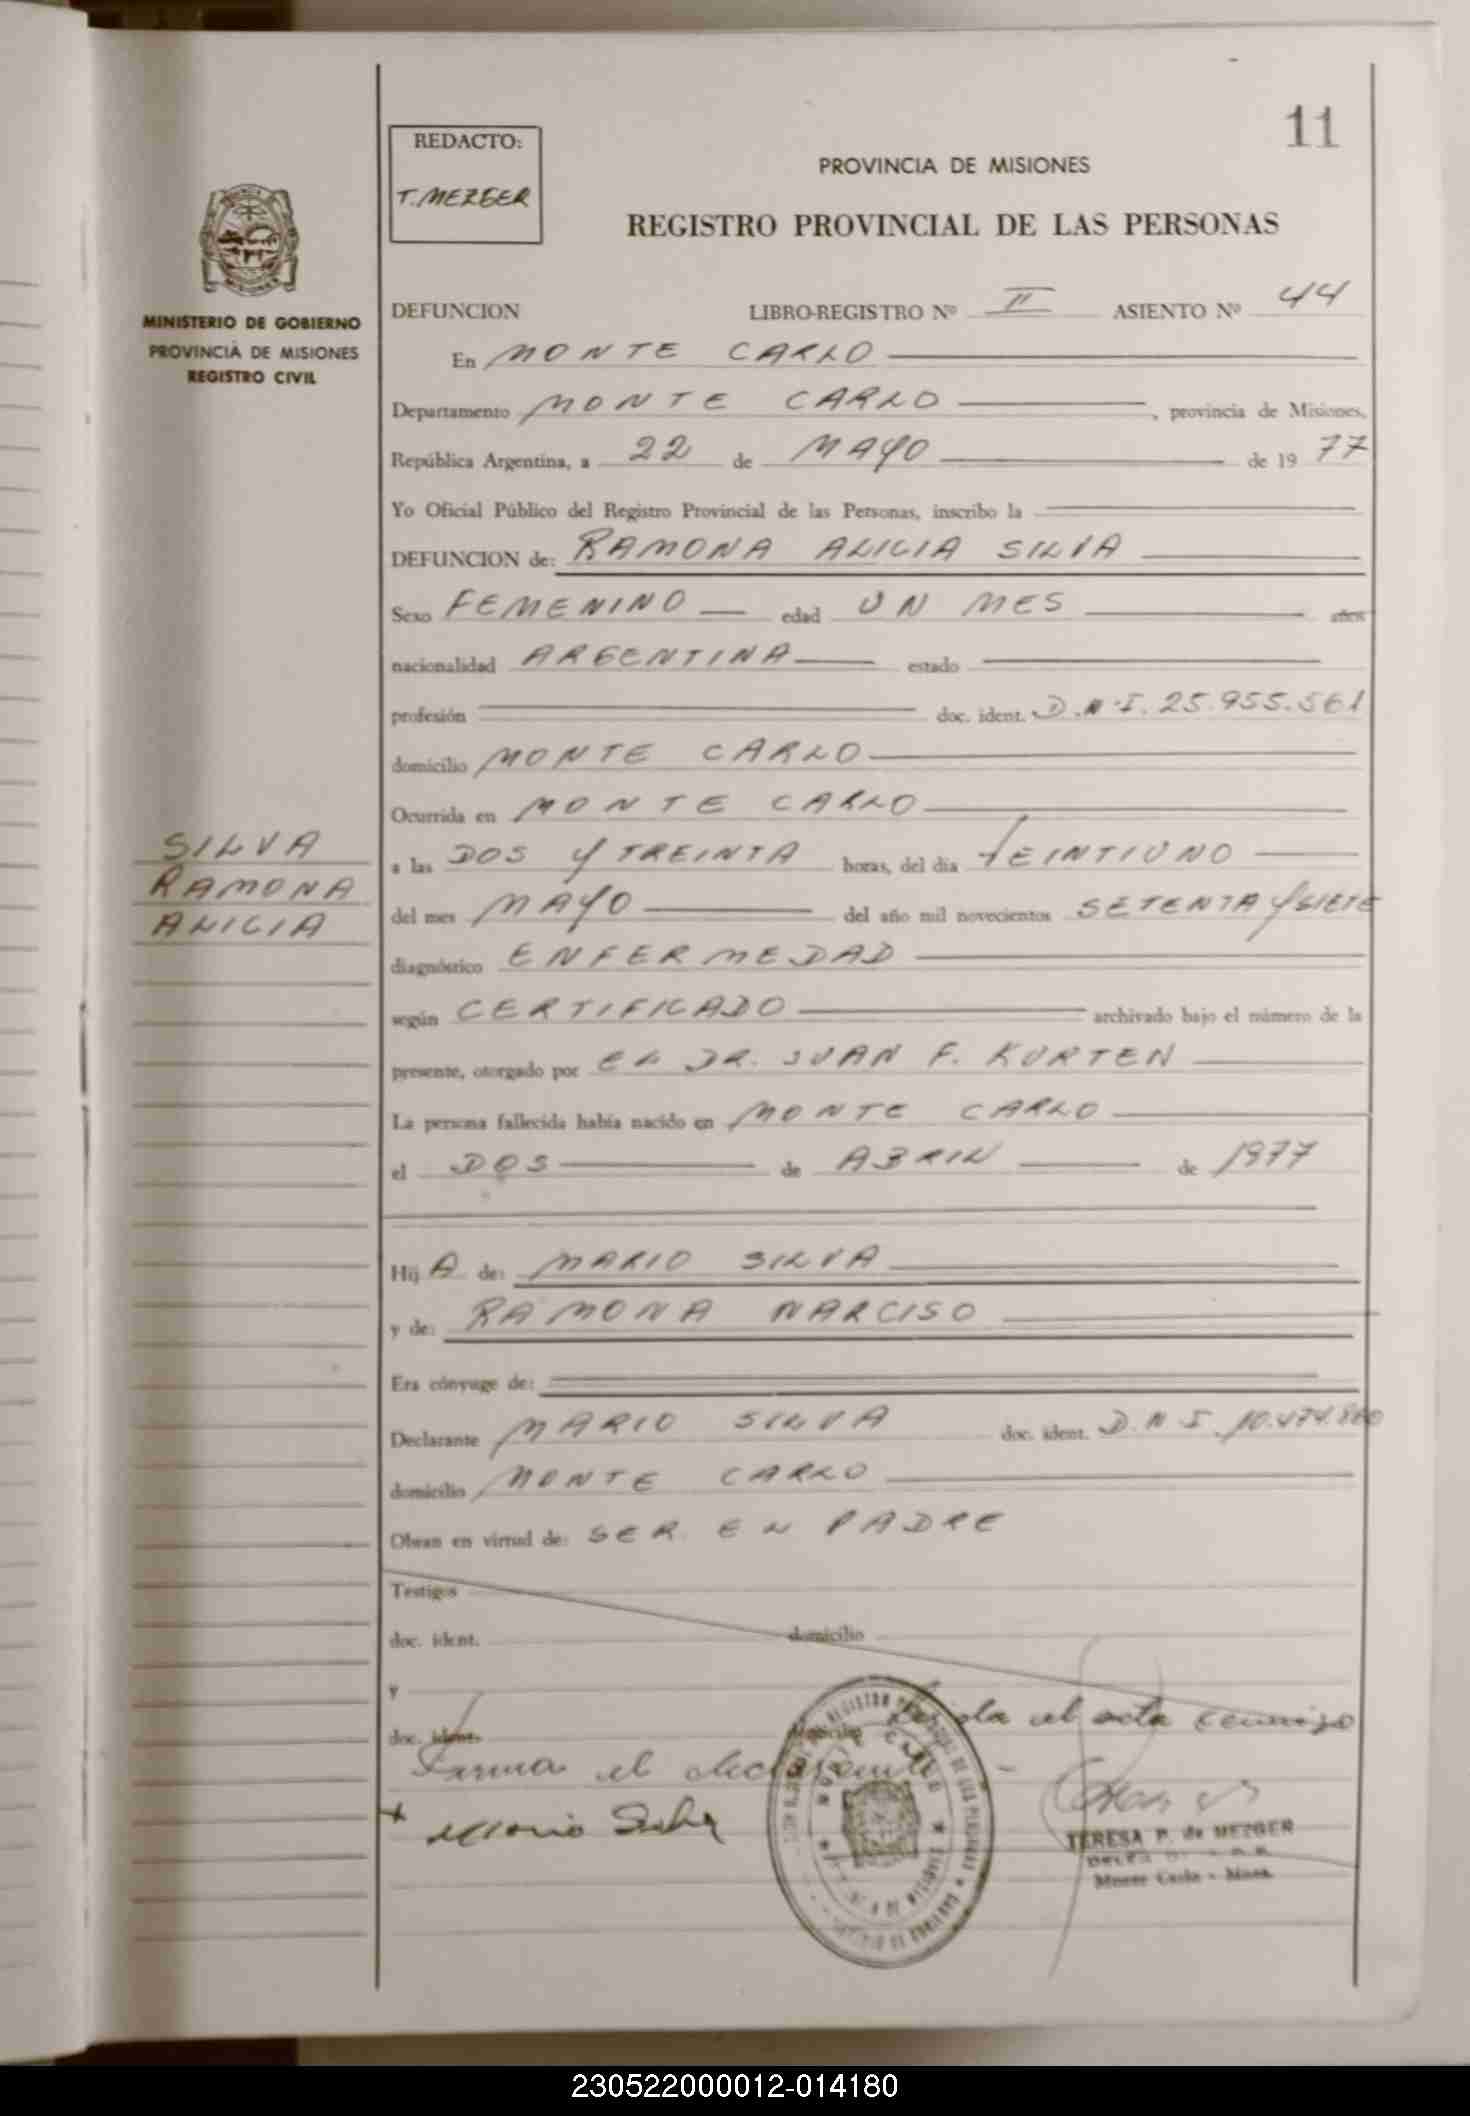 11
REDACTO:
T. MEZGER
PROVINCIA DE MISIONES
REGISTRO PROVINCIAL DE LAS PERSONAS
MINISTERIO DE GOBIERNO
PROVINCIA DE MISIONES
REGISTRO CIVIL
DEFUNCION LIBRO-REGISTRO Nº II ASIENTO Nº 44
En MONTE CARLO
Departamento MONTE CARLO, provincia de Misiones,
República Argentina, a 22 de MAYO de 1977
Yo Oficial Público del Registro Provincial de las Personas, inscribo la
DEFUNCION de: RAMONA ALICIA SILVA
Sexo FEMENINO edad UN MES años
nacionalidad ARGENTINA estado
profesión doc. ident. D.N.I. 25.955.561
domicilio MONTE CARLO
Ocurrida en MONTE CARLO
SILVA
RAMONA
ALICIA
a las DOS Y TREINTA horas, del día VEINTIUNO
del mes MAYO del año mil novecientos SETENTA Y SIETE
diagnóstico ENFERMEDAD
según CERTIFICADO archivado bajo el número de la
presente, otorgado por EL DR. JUAN F. KURTEN
La persona fallecida había nacido en MONTE CARLO
el DOS de ABRIL de 1977
Hij A de: MARIO SILVA
y de: RAMONA NARCISO
Era cónyuge de:
Declarante MARIO SILVA doc. ident. D.N.I. 10.474.860
domicilio MONTE CARLO
Obran en virtud de: SER EL PADRE
Testigos
doc. ident. domicilio
y
doc. ident.
el acta conmigo
Firma el declarante
Mario Silva
TERESA P. de MEZGER
Monte Carlo - Mnes.
230522000012-014180